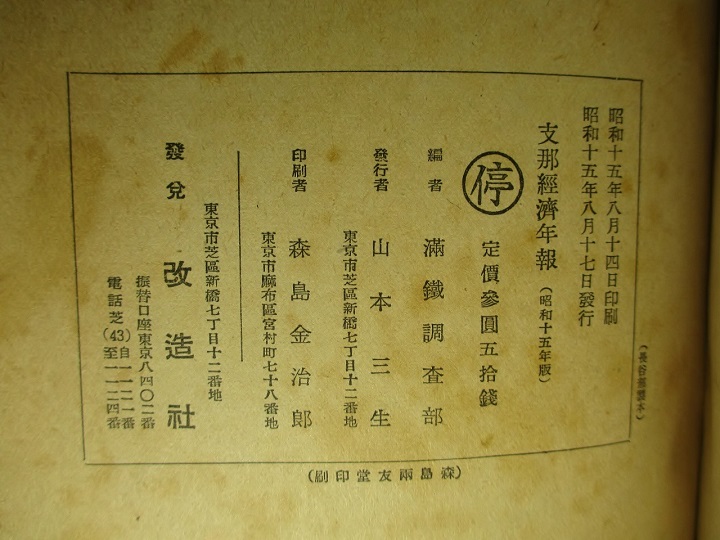 昭和十五年八月十四日印刷
昭和十五年八月十七日發行
支那經濟年報(昭和十五年版)
停
定價參圓五拾錢
編者 滿鐵調査部
發行者 山本三生
東京市芝區新橋七丁目十二番地
印刷者 森島金治郎
東京市麻布區宮村町七十八番地
東京市芝區新橋七丁目十二番地
發兌 改造社
振替口座東京八四〇二番
電話芝(43)自一一二一番
至一一二四番
(長谷部製本)
(森島兩友堂印刷)